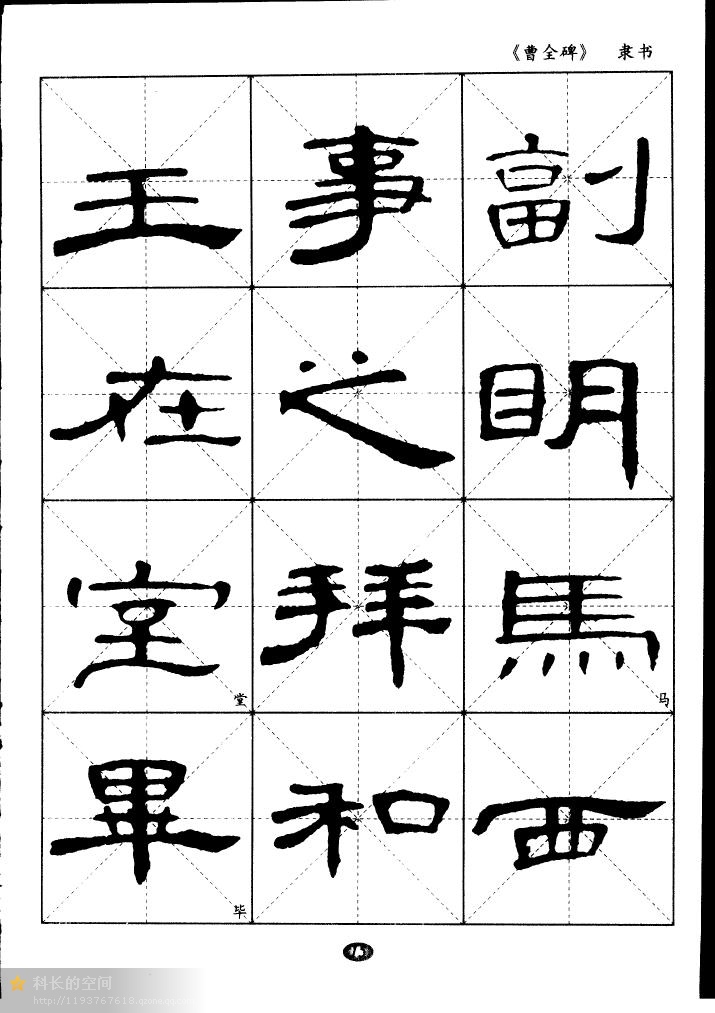 《曹全碑》 隶书
副明馬西
马
事之拜和
王在堂畢
堂
毕
科长的空间